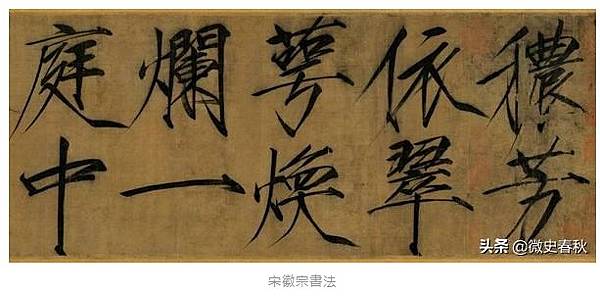 穠芳
依翠
萼煥
爛一
庭中
头条 @微史春秋
宋徽宗書法